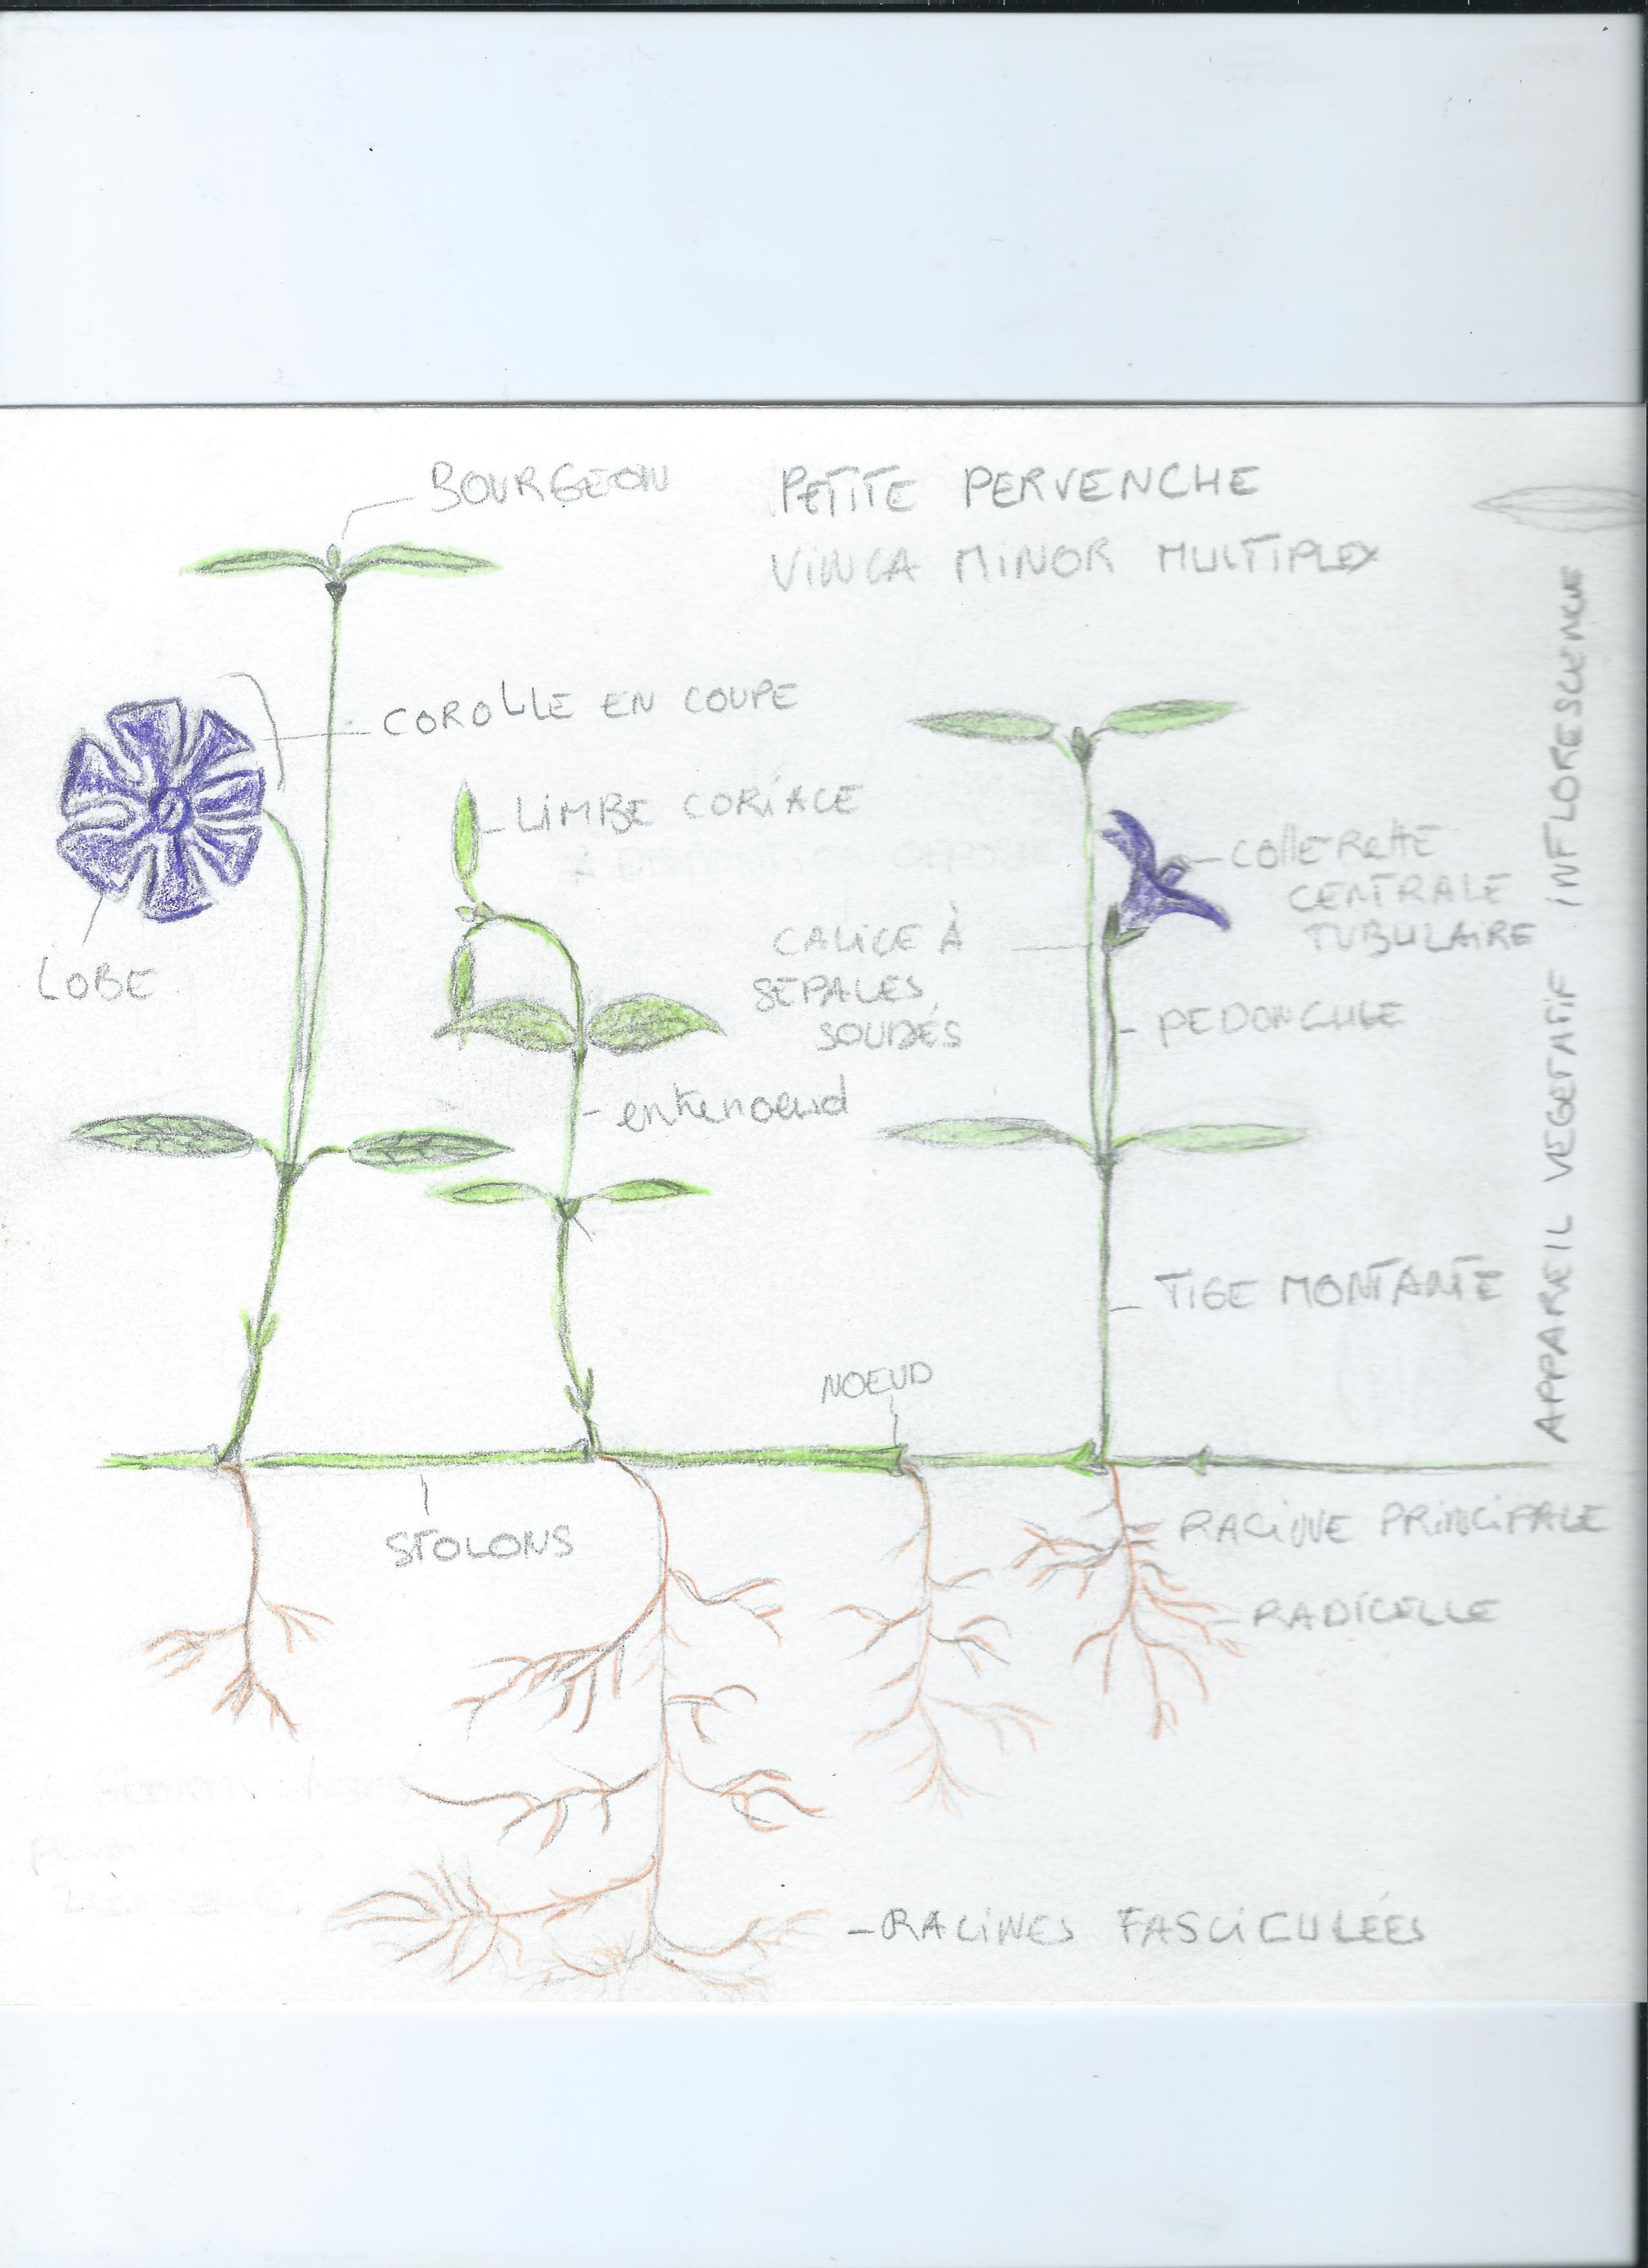 BOURGEON
PETITE PERVENCHE
VINCA MINOR MULTIPLEX
COROLLE EN COUPE
LIMBE CORIACE
LOBE
COLLERETTE
CENTRALE
TUBULAIRE
CALICE À
SEPALES
SOUDÉS
PEDONCULE
entrenoeud
TIGE MONTANTE
NOEUD
STOLONS
RACINE PRINCIPALE
RADICELLE
RACINES FASCICULÉES
APPAREIL VEGETATIF INFLORESCENCE